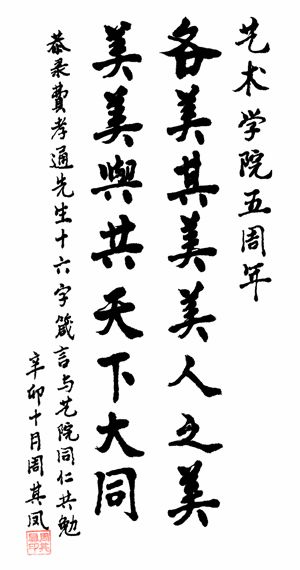 艺术学院五周年
各美其美美人之美
美美與共天下大同
恭录費孝通先生十六字箴言与艺院同仁共勉
辛卯十月周其凤